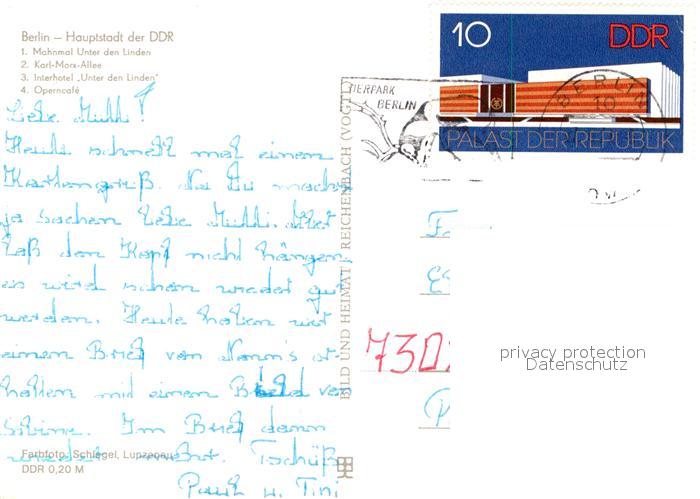 Berlin – Hauptstadt der DDR
1. Mahnmal Unter den Linden
2. Karl-Marx-Allee
3. Interhotel „Unter den Linden"
4. Operncafé
10 DDR
PALAST DER REPUBLIK
TIERPARK
BERLIN
BERLIN
Liebe Mutti!
Heute schnell mal einen
Kartengruß. Na Du machst
ja sachen liebe Mutti. Aber
laß den Kopf nicht hängen
es wird schon wieder gut
werden. Heute haben wir
einen Brief von
halten mit einem Bild von
Im Brief dann
wieder mehr. Tschüß
Paul u. Tini
730
BILD UND HEIMAT REICHENBACH (VOGTL)
Farbfoto: Schlegel, Lupzenau
DDR 0,20 M
privacy protection
Datenschutz